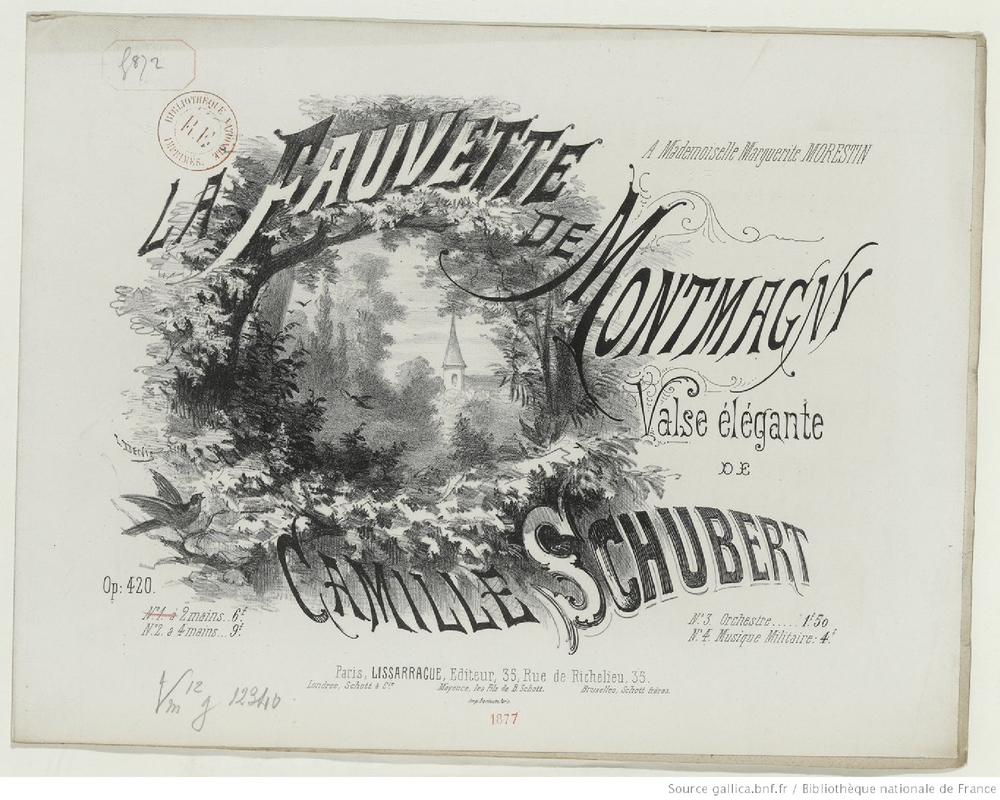 g 872
BIBLIOTHÈQUE NATIONALE
R.F.
IMPRIMÉS.
A Mademoiselle Marguerite MORESTIN
LA FAUVETTE
DE MONTMAGNY
Valse élégante
DE
CAMILLE SCHUBERT
Op: 420.
N°1. à 2 mains... 6f
N°2. à 4 mains... 9f
N°3. Orchestre..... 1f50
N°4. Musique Militaire: 4f
Paris, LISSARRAGUE, Editeur, 35, Rue de Richelieu, 35.
Londres, Schott & Cie
Mayence, les fils de B. Schott.
Bruxelles, Schott frères.
1877
Vm 12 g 12340
Source gallica.bnf.fr / Bibliothèque nationale de France